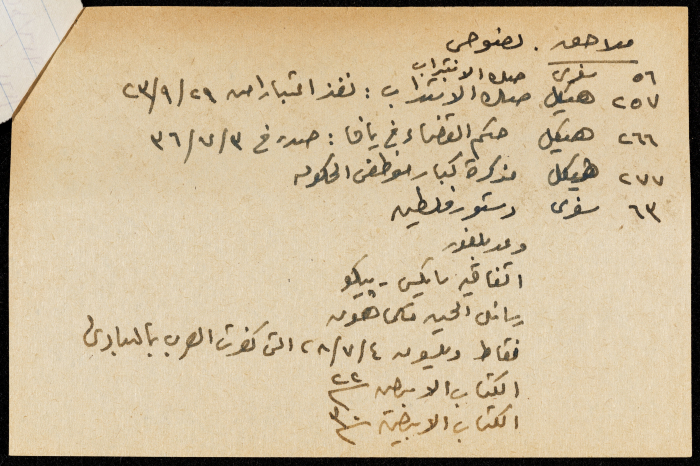 ملاحق . نصوص
٥٦ سفري صك الانتداب
٢٥٧ هيكل صك الانتداب : نفذ اعتبارا من ٢٣/٩/٢٩
٢٦٦ هيكل حكم القضاء في يافا : صدر في ٣٦/٧/٣
٢٧٧ هيكل مذكرة كبار موظفي الحكومة
٦٣ سفري دستور فلسطين
وعد بلفور
اتفاقية سايكس - بيكو
رسائل الحسين مكماهون
نقاط ولسون ٢٨/٧/٤ التي العرب بالمبادئ
الكتاب الابيض ٢٢
الكتاب الابيض ٣٠